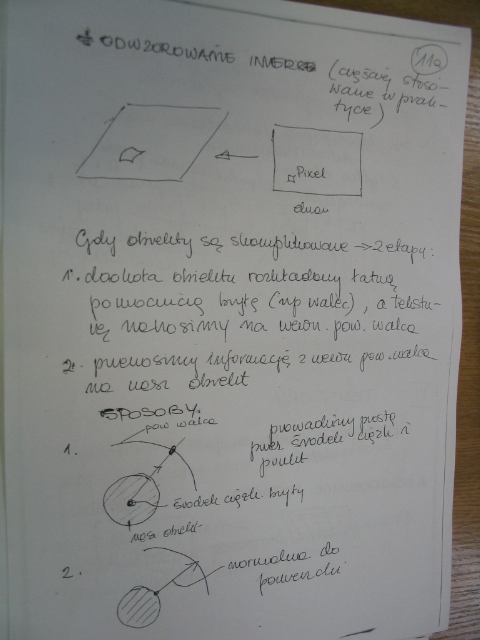 ODWZOROWANIE INVERSE (częściej stoso-
wane w prak-
tyce)
11a
Pixel
ekran
Gdy obiekty są skomplikowane → 2 etapy:
1°. dookoła obiektu rozkładamy łatwą
pomocniczą bryłę (np walec), a tekstu-
rę nanosimy na wewn. pow. walca
2°. przenosimy informację z wewn pow. walca
na nasz obiekt
SPOSOBY:
1.
pow walca
prowadzimy prostą
przez środek ciężk i
punkt
środek ciężk. bryły
nasz obiekt
2.
normalna do
powierzchni